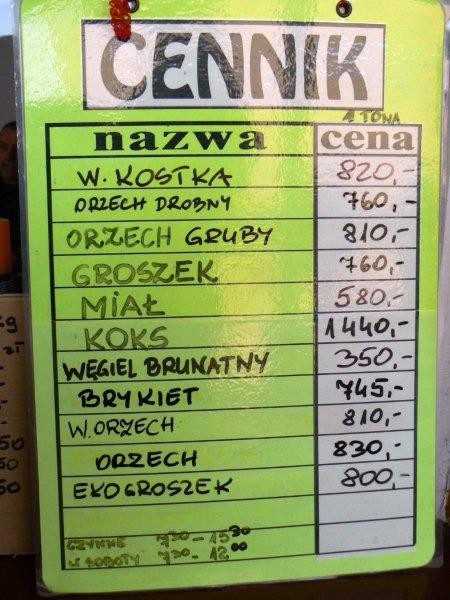 CENNIK
1 TONA
nazwa cena
W. KOSTKA 820,-
ORZECH DROBNY 760,-
ORZECH GRUBY 810,-
GROSZEK 760,-
MIAŁ 580,-
KOKS 1440,-
WĘGIEL BRUNATNY 350,-
BRYKIET 745,-
W. ORZECH 810,-
ORZECH 830,-
EKOGROSZEK 800,-
CZYNNE 7³⁰ - 15³⁰
W SOBOTY 7³⁰ - 12⁰⁰
zł
50
50
50